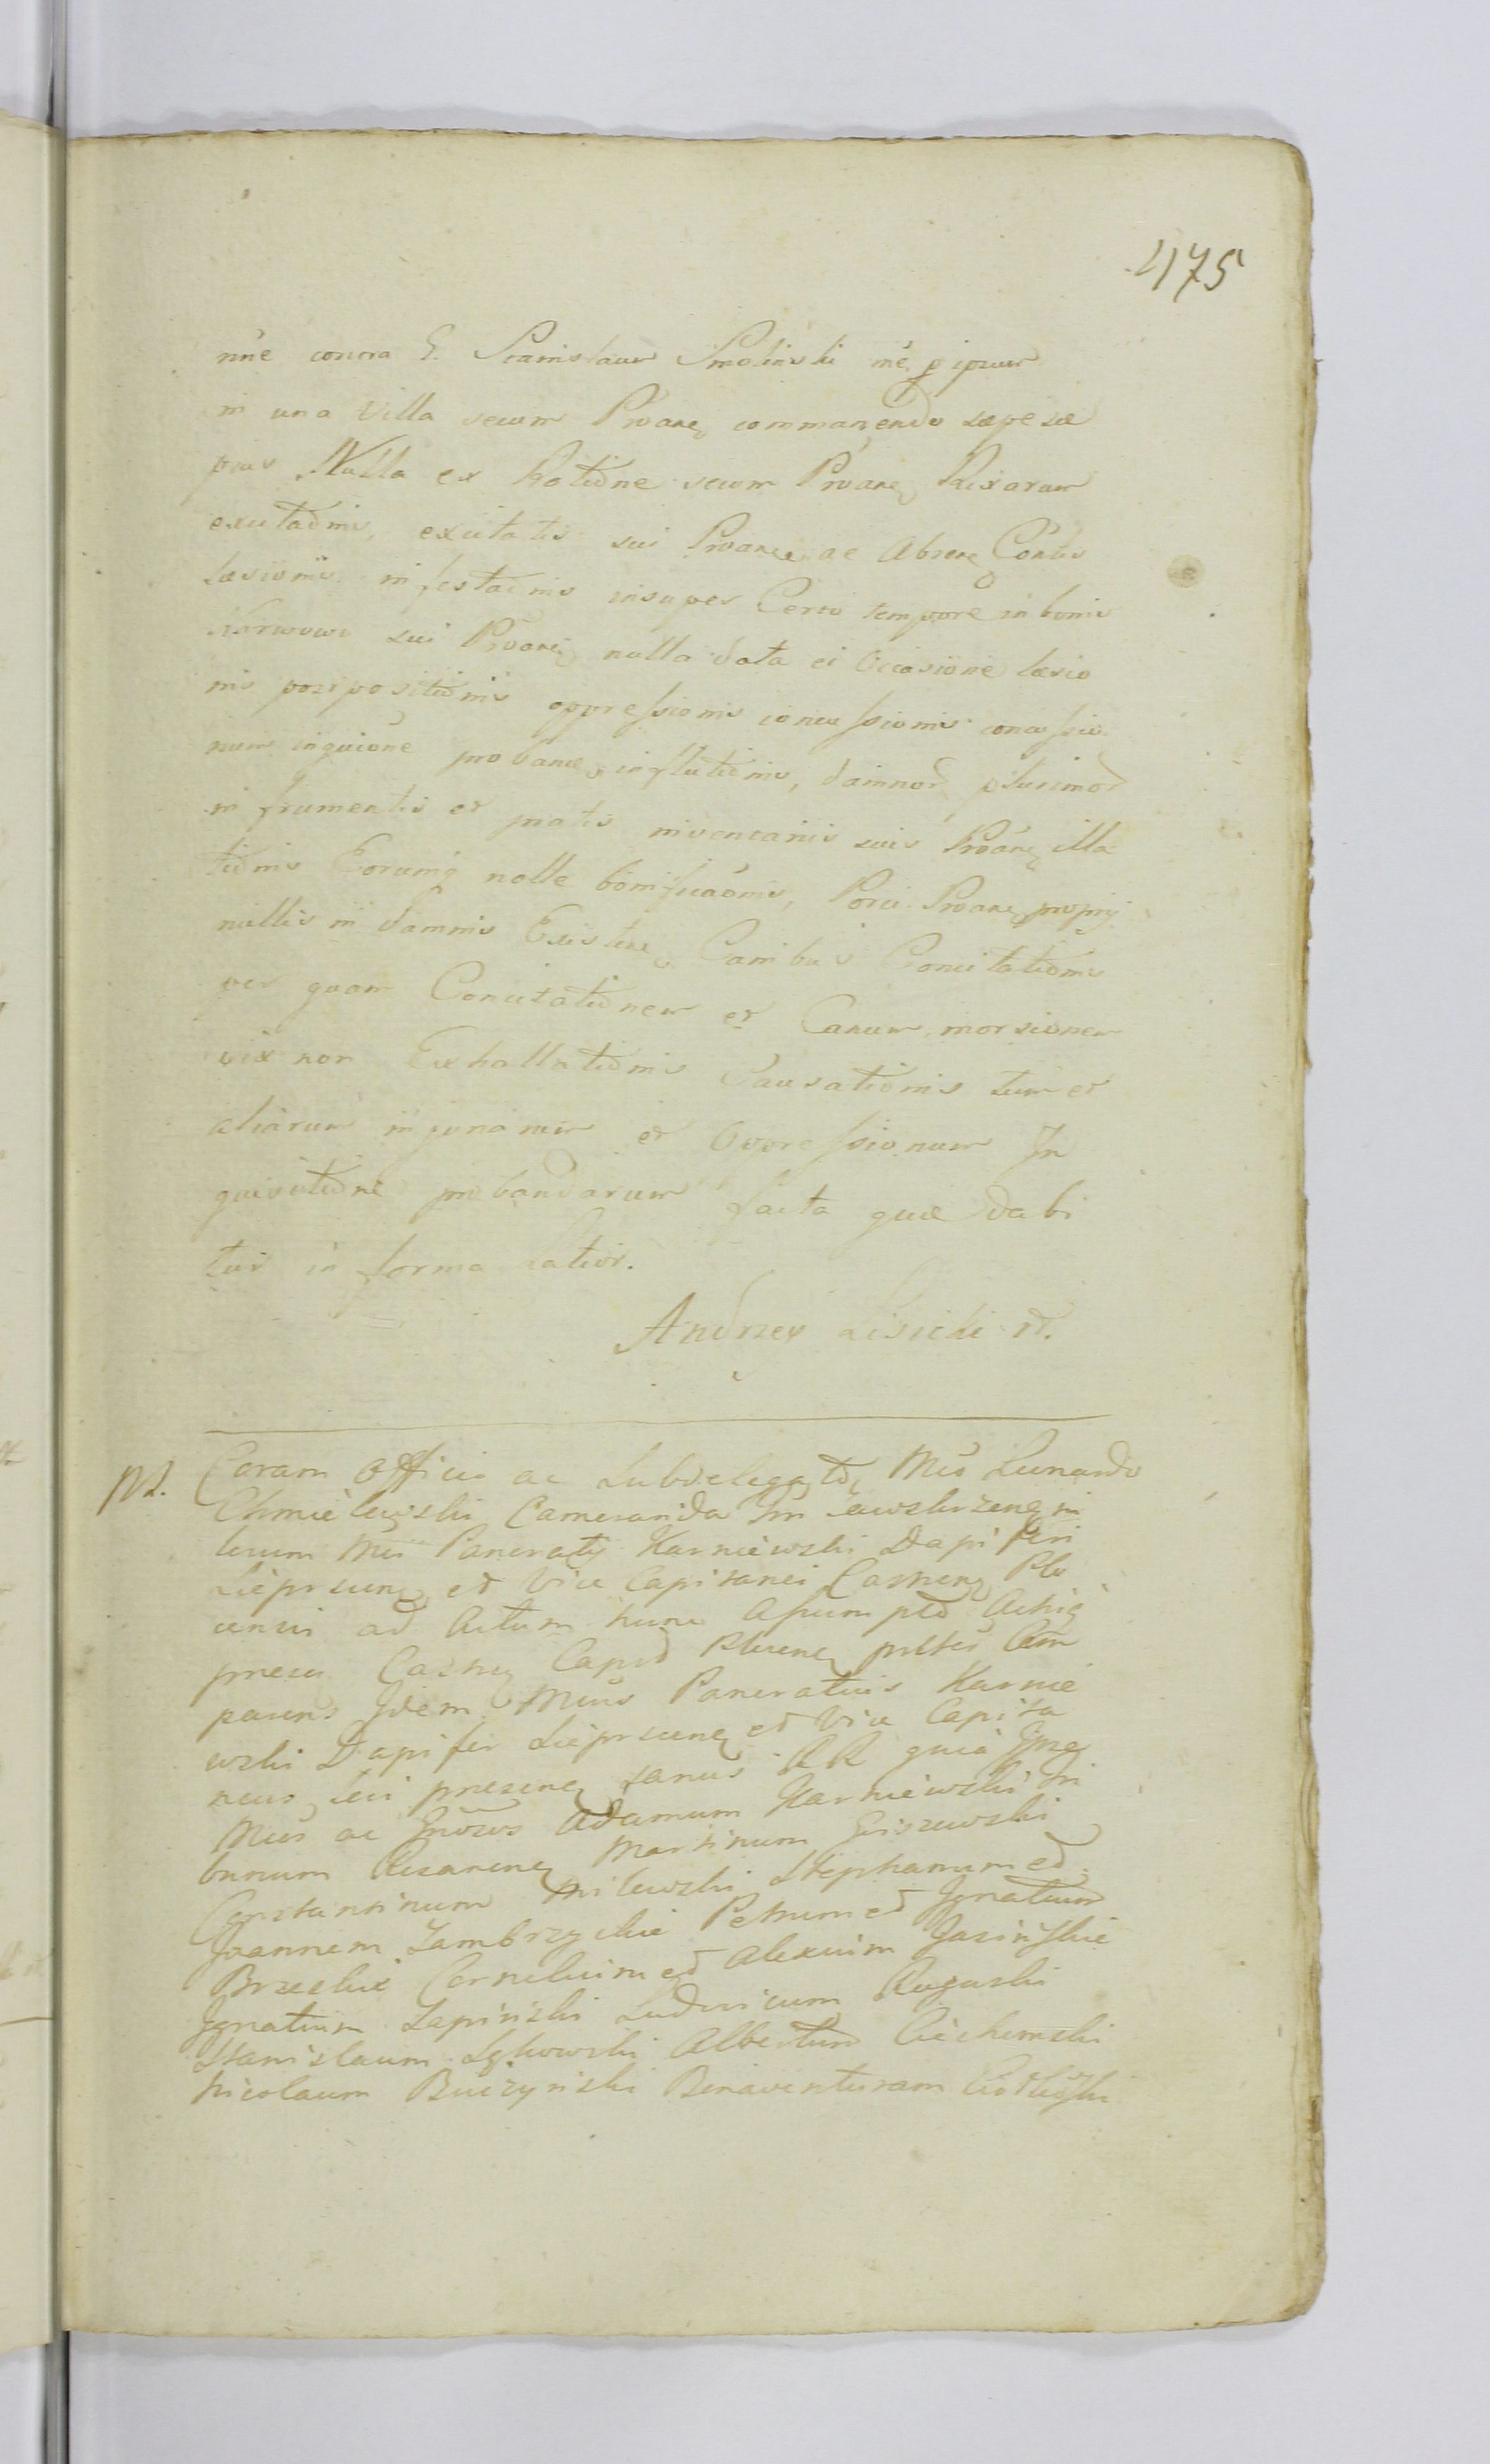 475
nne contra G. Stanislaum Smolinski me p ipsum
in una Villa secum Proane commanendo sæpe sæ
pius Nulla ex Ratione secum Proane Rixarum
excitaonis, excitatis sui Proane ac Absene Contis
læsionis infestaonis insuper Certo tempore in bonis
sui Proane nulla data ei Occasione læsio
nis postpositionis oppressionis concussionis
num inquione probane inflictionis, damnor plurimor
in frumentis et pratis inventariis suis Proane illa
tionis Eorumq nolle bonificaonis, Porci Proane proprij
nullis in damnis Existen Canibus Concitationis
per quam Concitationem et Canum morsionem
vix non Exhallationis Causationis tum et
aliarum injuriarum et Oppressionum In
quisitione probandarum facta quæ dabi
tur in forma latior.
Andrzey Lisicki
Coram Officio ac Subdelegato Mco Leonardo
Chmielewski Camerarida in
locum Mci Pancratij Karniewski Dapiferi
et Vice Capitanei Castren Plo
censis ad Actum hunc Assumpto Actisq
presen Castren Capid Plocen pnltr Com
parens Idem Mcus Pancratius Karnie
wski Dapifer et Vice Capita
neus sui presene sanus RR quia Ipse
Mcos ac Gnosos Adamum Karniewski Tri
bunum Rosanen Martinum Giszewski
Constantinum Milewski Stephanum et
Joannem Zambrzyckie Petrum et Ignatium
Brzeskie Cornelium et Alexium Jasinskie
Ignatium Lapinski Ludovicum Roguski
Stanislaum Lękowski Albertum Ciechomski
Nicolaum Buczynski Bonaventuram